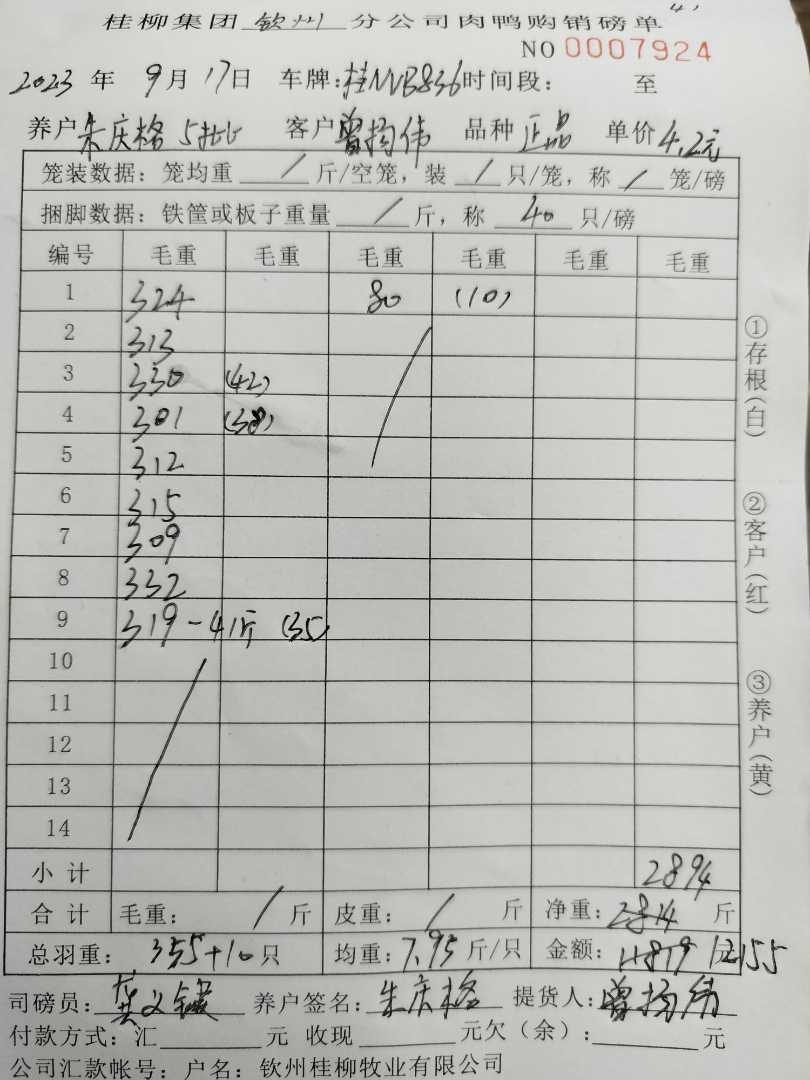 桂柳集团 钦州 分公司肉鸭购销磅单
NO 0007924
2023 年 9月17日 车牌:桂NVB836 时间段: 至
养户 朱庆格 5批 客户 曾扬伟 品种 正品 单价 4.2元
笼装数据:笼均重 / 斤/空笼,装 / 只/笼,称 / 笼/磅
捆脚数据:铁筐或板子重量 / 斤,称 40 只/磅
编号 毛重 毛重 毛重 毛重 毛重 毛重
1 324 80 (10)
2 313
3 330 (42)
4 301 (38)
5 312
6 315
7 309
8 332
9 319-41斤 (35)
10
11
12
13
14
小计 2894
合计 毛重: / 斤 皮重: / 斤 净重:2814 斤
总羽重: 355+10只 均重:7.95斤/只 金额:11819 12155
司磅员: 养户签名:朱庆格 提货人:曾扬伟
付款方式:汇 元 收现 元欠(余): 元
公司汇款帐号:户名:钦州桂柳牧业有限公司
①存根(白)
②客户(红)
③养户(黄)